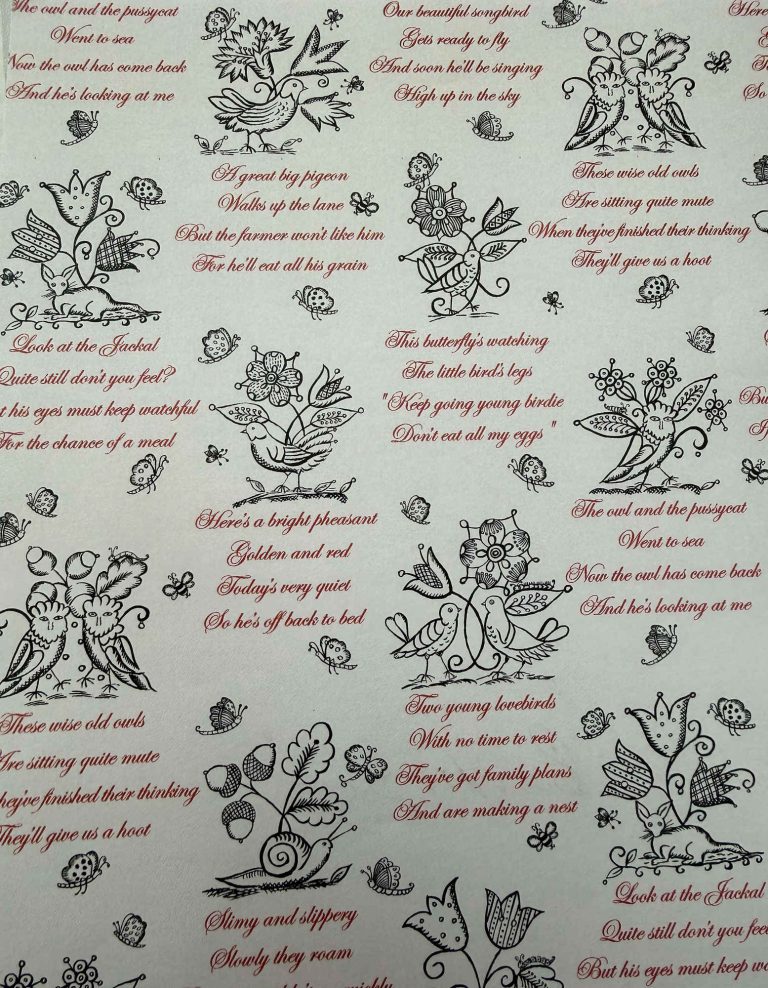 The owl and the pussycat
Went to sea
Now the owl has come back
And he's looking at me
Look at the Jackal
Quite still don't you feel?
his eyes must keep watchful
For the chance of a meal
These wise old owls
Are sitting quite mute
they've finished their thinking
They'll give us a hoot
A great big pigeon
Walks up the lane
But the farmer won't like him
For he'll eat all his grain
Here's a bright pheasant
Golden and red
Today's very quiet
So he's off back to bed
Slimy and slippery
Slowly they roam
quickly
Our beautiful songbird
Gets ready to fly
And soon he'll be singing
High up in the sky
This butterfly's watching
The little bird's legs
"Keep going young birdie
Don't eat all my eggs"
Two young lovebirds
With no time to rest
They've got family plans
And are making a nest
These wise old owls
Are sitting quite mute
When they've finished their thinking
They'll give us a hoot
The owl and the pussycat
Went to sea
Now the owl has come back
And he's looking at me
Look at the Jackal
Quite still don't you feel
But his eyes must keep
Here
So